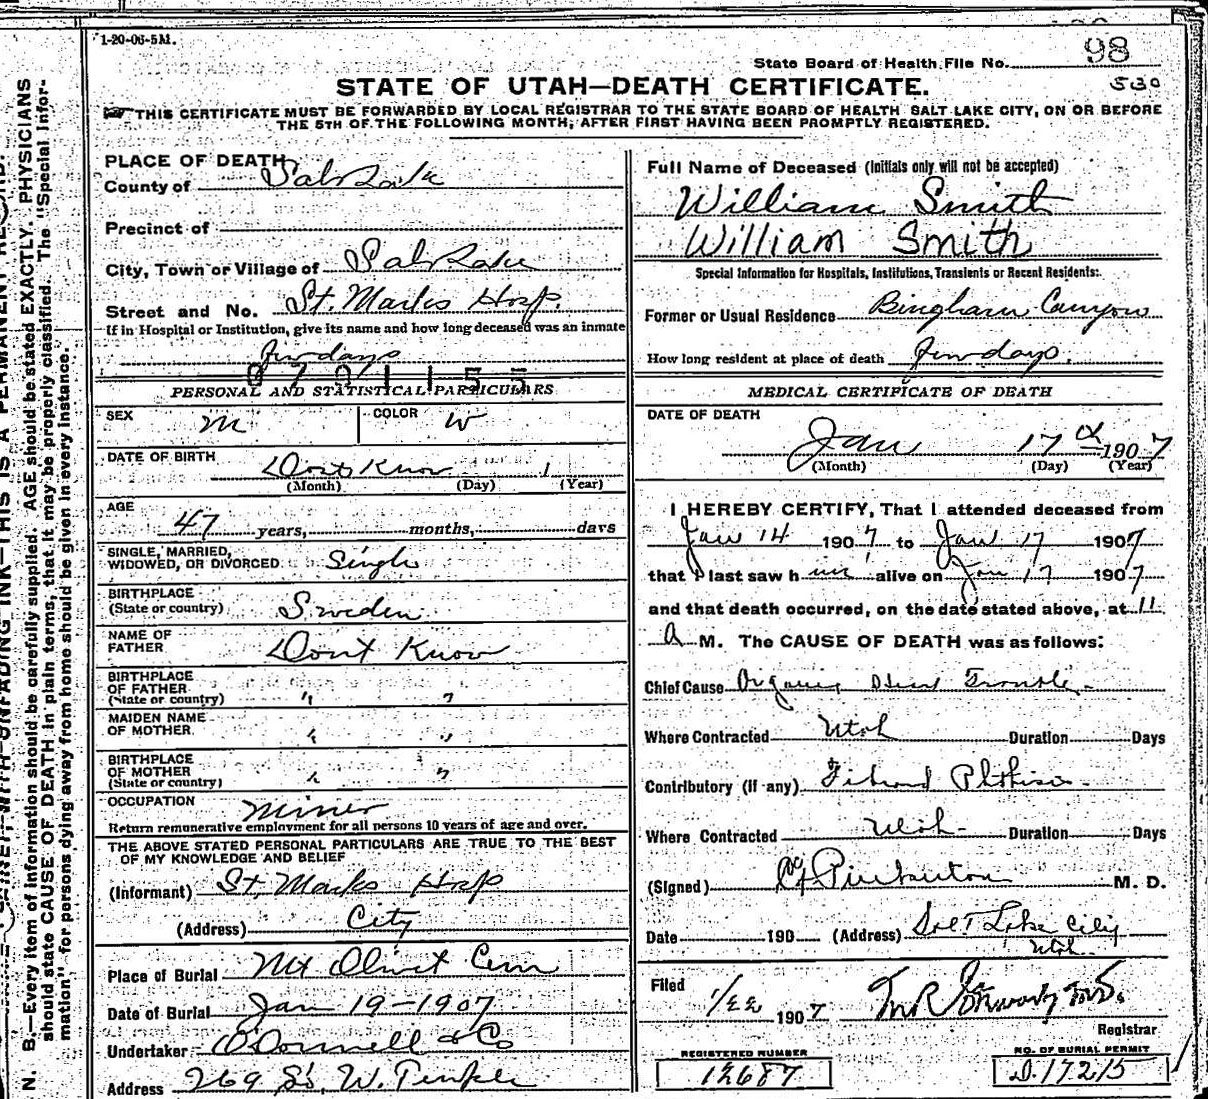 1-20-06-5M.
State Board of Health File No. 98
530
STATE OF UTAH—DEATH CERTIFICATE.
THIS CERTIFICATE MUST BE FORWARDED BY LOCAL REGISTRAR TO THE STATE BOARD OF HEALTH SALT LAKE CITY, ON OR BEFORE
THE 5TH OF THE FOLLOWING MONTH, AFTER FIRST HAVING BEEN PROMPTLY REGISTERED.
PLACE OF DEATH
County of Salt Lake
Precinct of
City, Town or Village of Salt Lake
Street and No. St. Marks Hosp.
If in Hospital or Institution, give its name and how long deceased was an inmate
few days
PERSONAL AND STATISTICAL PARTICULARS
SEX M COLOR W
DATE OF BIRTH Dont Know 1
(Month) (Day) (Year)
AGE
47 years, months, days
SINGLE, MARRIED,
WIDOWED, OR DIVORCED Single
BIRTHPLACE
(State or country) Sweden
NAME OF
FATHER Dont Know
BIRTHPLACE
OF FATHER
(State or country) " "
MAIDEN NAME
OF MOTHER " "
BIRTHPLACE
OF MOTHER
(State or country) " "
OCCUPATION Miner
Return remunerative employment for all persons 10 years of age and over.
THE ABOVE STATED PERSONAL PARTICULARS ARE TRUE TO THE BEST
OF MY KNOWLEDGE AND BELIEF
(Informant) St. Marks Hosp
(Address) City
Place of Burial Mt Olivet Cem
Date of Burial Jan 19-1907
Undertaker O'Donnell & Co
Address 269 So. W. Temple
Full Name of Deceased (Initials only will not be accepted)
William Smith
William Smith
Special Information for Hospitals, Institutions, Transients or Recent Residents:
Former or Usual Residence Bingham Canyon
How long resident at place of death few days.
MEDICAL CERTIFICATE OF DEATH
DATE OF DEATH
Jan 17 1907
(Month) (Day) (Year)
I HEREBY CERTIFY, That I attended deceased from
Jan 14 1907 to Jan 17 1907
that I last saw him alive on Jan 17 1907
and that death occurred, on the date stated above, at 11
A M. The CAUSE OF DEATH was as follows:
Chief Cause Organic Trouble
Where Contracted Utah Duration Days
Contributory (if any) Fibroid Phthisis
Where Contracted Utah Duration Days
(Signed) Pinkerton M. D.
Date 190 (Address) Salt Lake City
Utah
Filed 1/22 1907 M.D.
Registrar
REGISTERED NUMBER
12687
NO. OF BURIAL PERMIT
D.17215
N. B.—Every item of information should be carefully supplied. AGE should be stated EXACTLY. PHYSICIANS
should state CAUSE OF DEATH in plain terms, that it may be properly classified. The "Special Infor-
mation" for persons dying away from home should be given in every instance.